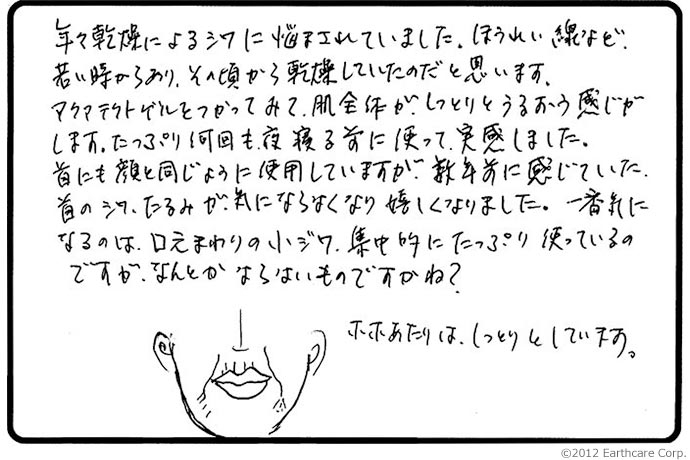 年々乾燥によるシワに悩まされていました。ほうれい線など、
若い時からあり、その頃から乾燥していたのだと思います。
アクアテクトゲルをつかってみて、肌全体が、しっとりとうるおう感じが
します。たっぷり何回も、夜寝る前に使って、実感しました。
首にも顔と同じように使用していますが、数年前に感じていた、
首のシワ、たるみが、気にならなくなり嬉しくなりました。一番気に
なるのは、口元まわりの小ジワ、集中的にたっぷり使っているの
ですが、なんとかならないものですかね？
ホホあたりは、しっとりとしています。
©2012 Earthcare Corp.